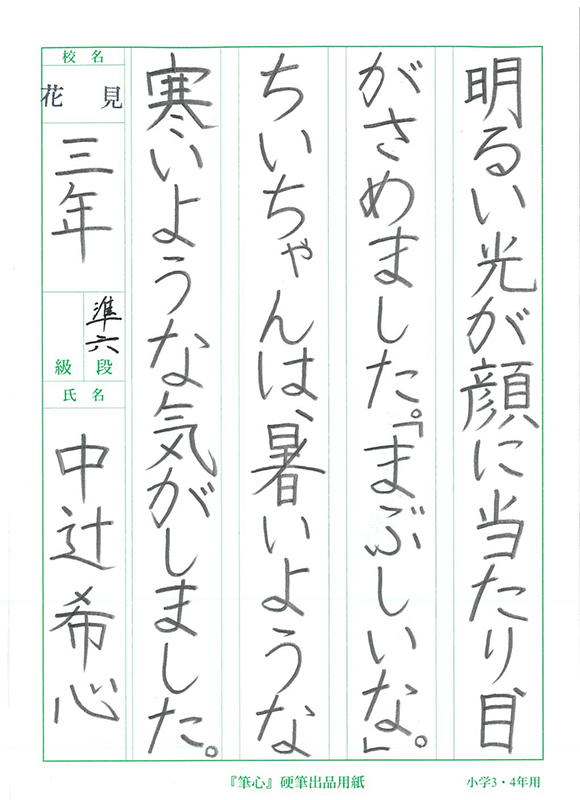 明るい光が顔に当たり目
がさめました。「まぶしいな」。
ちいちゃんは、暑いような
寒いような気がしました。
校名
花見
三年
準六
級段
氏名
中辻希心
『筆心』硬筆出品用紙
小学3・4年用